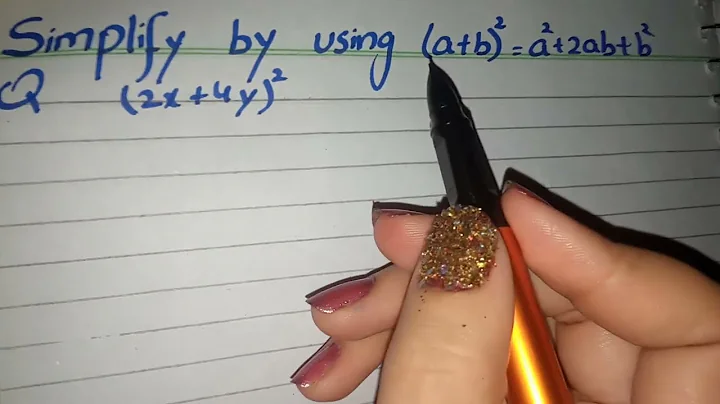 Simplify by using (a+b)² = a²+2ab+b²
Q (2x+4y)²